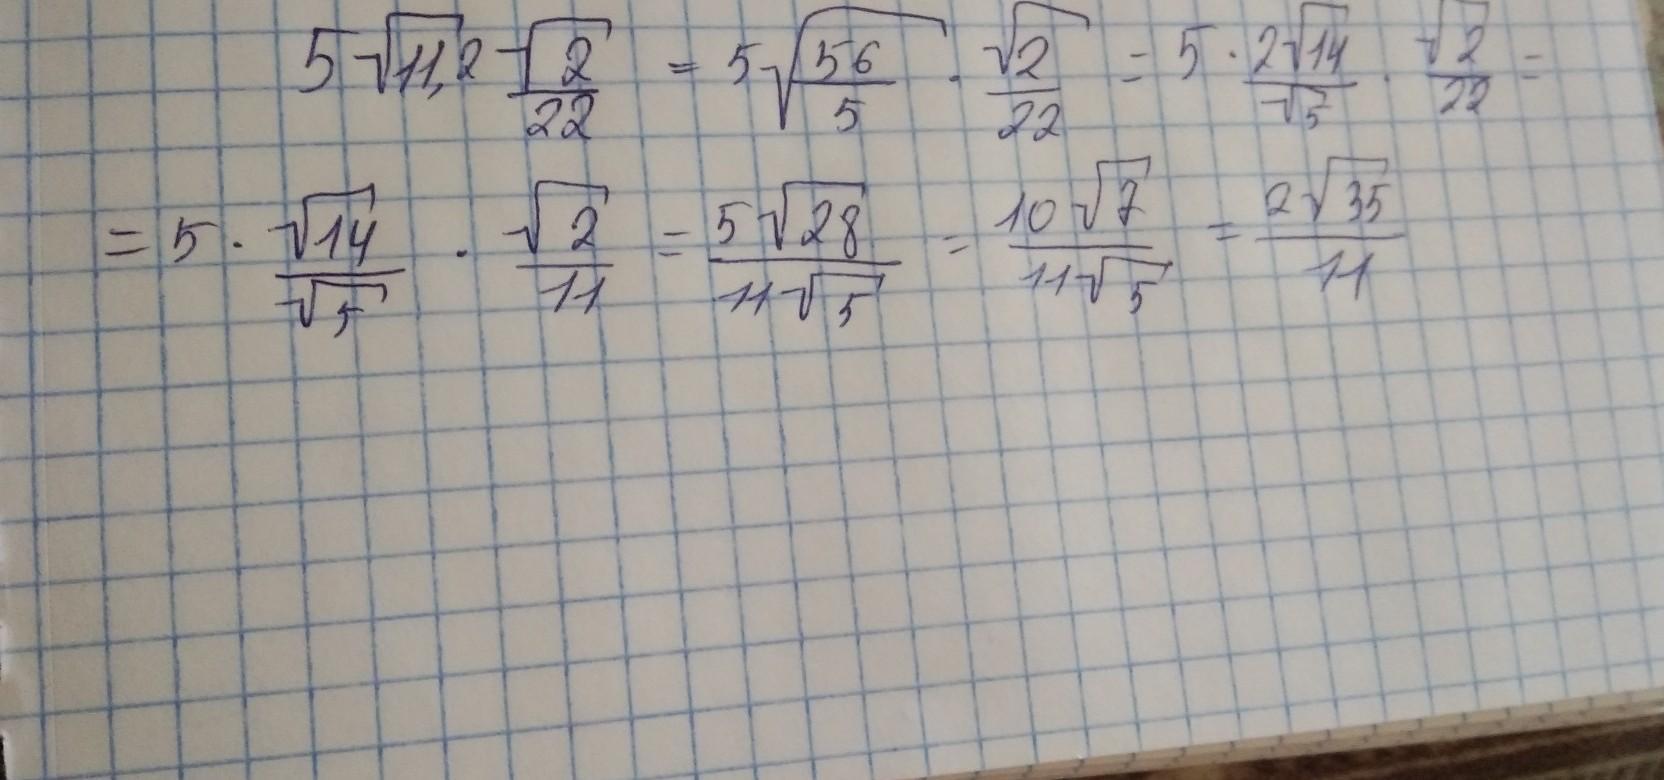 5√11,2 √2/22 = 5√56/5 · √2/22 = 5 · 2√14/√5 · √2/22 =
= 5 · √14/√5 · √2/11 = 5√28/11√5 = 10√7/11√5 = 2√35/11